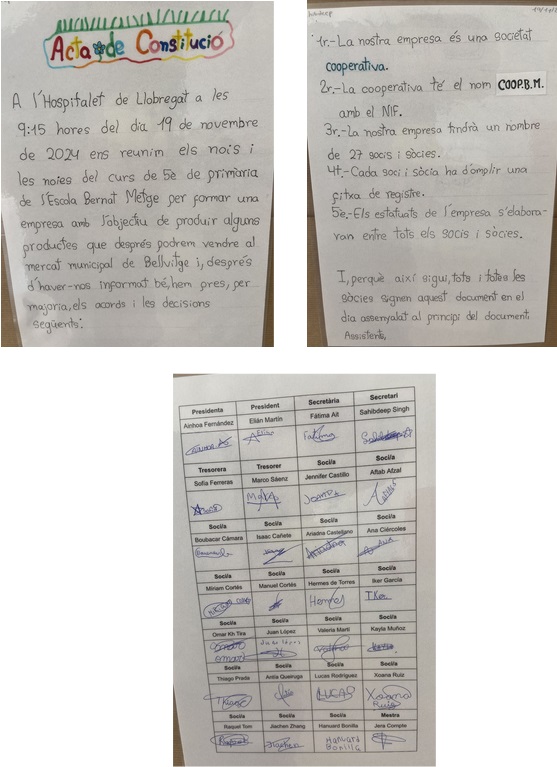 Acta de Constitució
A l'Hospitalet de Llobregat a les
9:15 hores del dia 19 de novembre
de 2024 ens reunim els nois i
les noies del curs de 5è de primària
de l'Escola Bernat Metge per formar una
empresa amb l'objectiu de produir alguns
productes que després podrem vendre al
mercat municipal de Bellvitge i, després
d'haver-nos informat bé, hem pres, per
majoria, els acords i les decisions
següents:
1r.-La nostra empresa és una societat
cooperativa.
2r.-La cooperativa té el nom COOP.B.M.
amb el NIF.
3r.-La nostra empresa tindrà un nombre
de 27 socis i sòcies.
4t.-Cada soci i sòcia ha d'omplir una
fitxa de registre.
5è.-Els estatuts de l'empresa s'elabora-
ran entre tots els socis i sòcies.
I, perquè així sigui, tots i totes les
sòcies signen aquest document en el
dia assenyalat al principi del document.
Assistents,
Presidenta President Secretària Secretari
Ainhoa Fernández Elián Martín Fátima Ait Sahibdeep Singh
Tresorera Tresorer Soci/a Soci/a
Sofía Ferreras Marco Sáenz Jennifer Castillo Aftab Afzal
Soci/a Soci/a Soci/a Soci/a
Boubacar Cámara Isaac Cañete Ariadna Castellano Ana Ciércoles
Soci/a Soci/a Soci/a Soci/a
Miriam Cortés Manuel Cortés Hermes de Torres Iker García
Hermes Iker
Soci/a Soci/a Soci/a Soci/a
Omar Kh Tira Juan López Valeria Martí Kayla Muñoz
omar
Soci/a Soci/a Soci/a Soci/a
Thiago Prada Antía Queiruga Lucas Rodrigues Xoana Ruiz
LUCAS Xoana
Ruiz
Soci/a Soci/a Soci/a Mestra
Raquel Tom Jiachen Zhang Hanuard Bonilla Jera Compte
Jiachen Hanuard
Bonilla